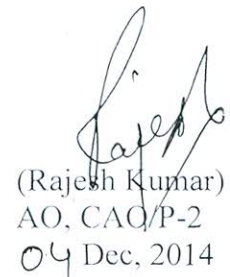 Rajesh
(Rajesh Kumar)
AO, CAO/P-2
04 Dec, 2014